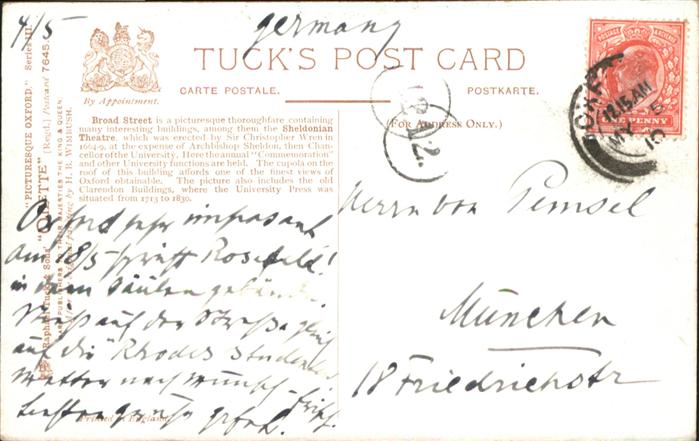 4/5
Germany
TUCK'S POST CARD
CARTE POSTALE.
POSTKARTE.
By Appointment.
(FOR ADDRESS ONLY.)
Broad Street is a picturesque thoroughfare containing
many interesting buildings, among them the Sheldonian
Theatre, which was erected by Sir Christopher Wren in
1664-9, at the expense of Archbishop Sheldon, then Chan-
cellor of the University. Here the annual "Commemoration"
and other University functions are held. The cupola on the
roof of this building affords one of the finest views of
Oxford obtainable. The picture also includes the old
Clarendon Buildings, where the University Press was
situated from 1713 to 1830.
"PICTURESQUE OXFORD." Series III.
Raphael Tuck & Sons' "OILETTE" [Regd.] Postcard 7645
ART PUBLISHERS TO THEIR MAJESTIES THE KING & QUEEN.
H. B. WIMBUSH.
Printed in England.
12.15 AM
MY 5
10
ONE PENNY
12.
Oxford sehr imposant
am 28/5 spricht Rosefeld!
in dem Säulen gebäude
auf der Straße
auf die Rhodes Studenten
Wetter nach Wunsch
Herrn von Pemsel
München
18 Friedrichstr